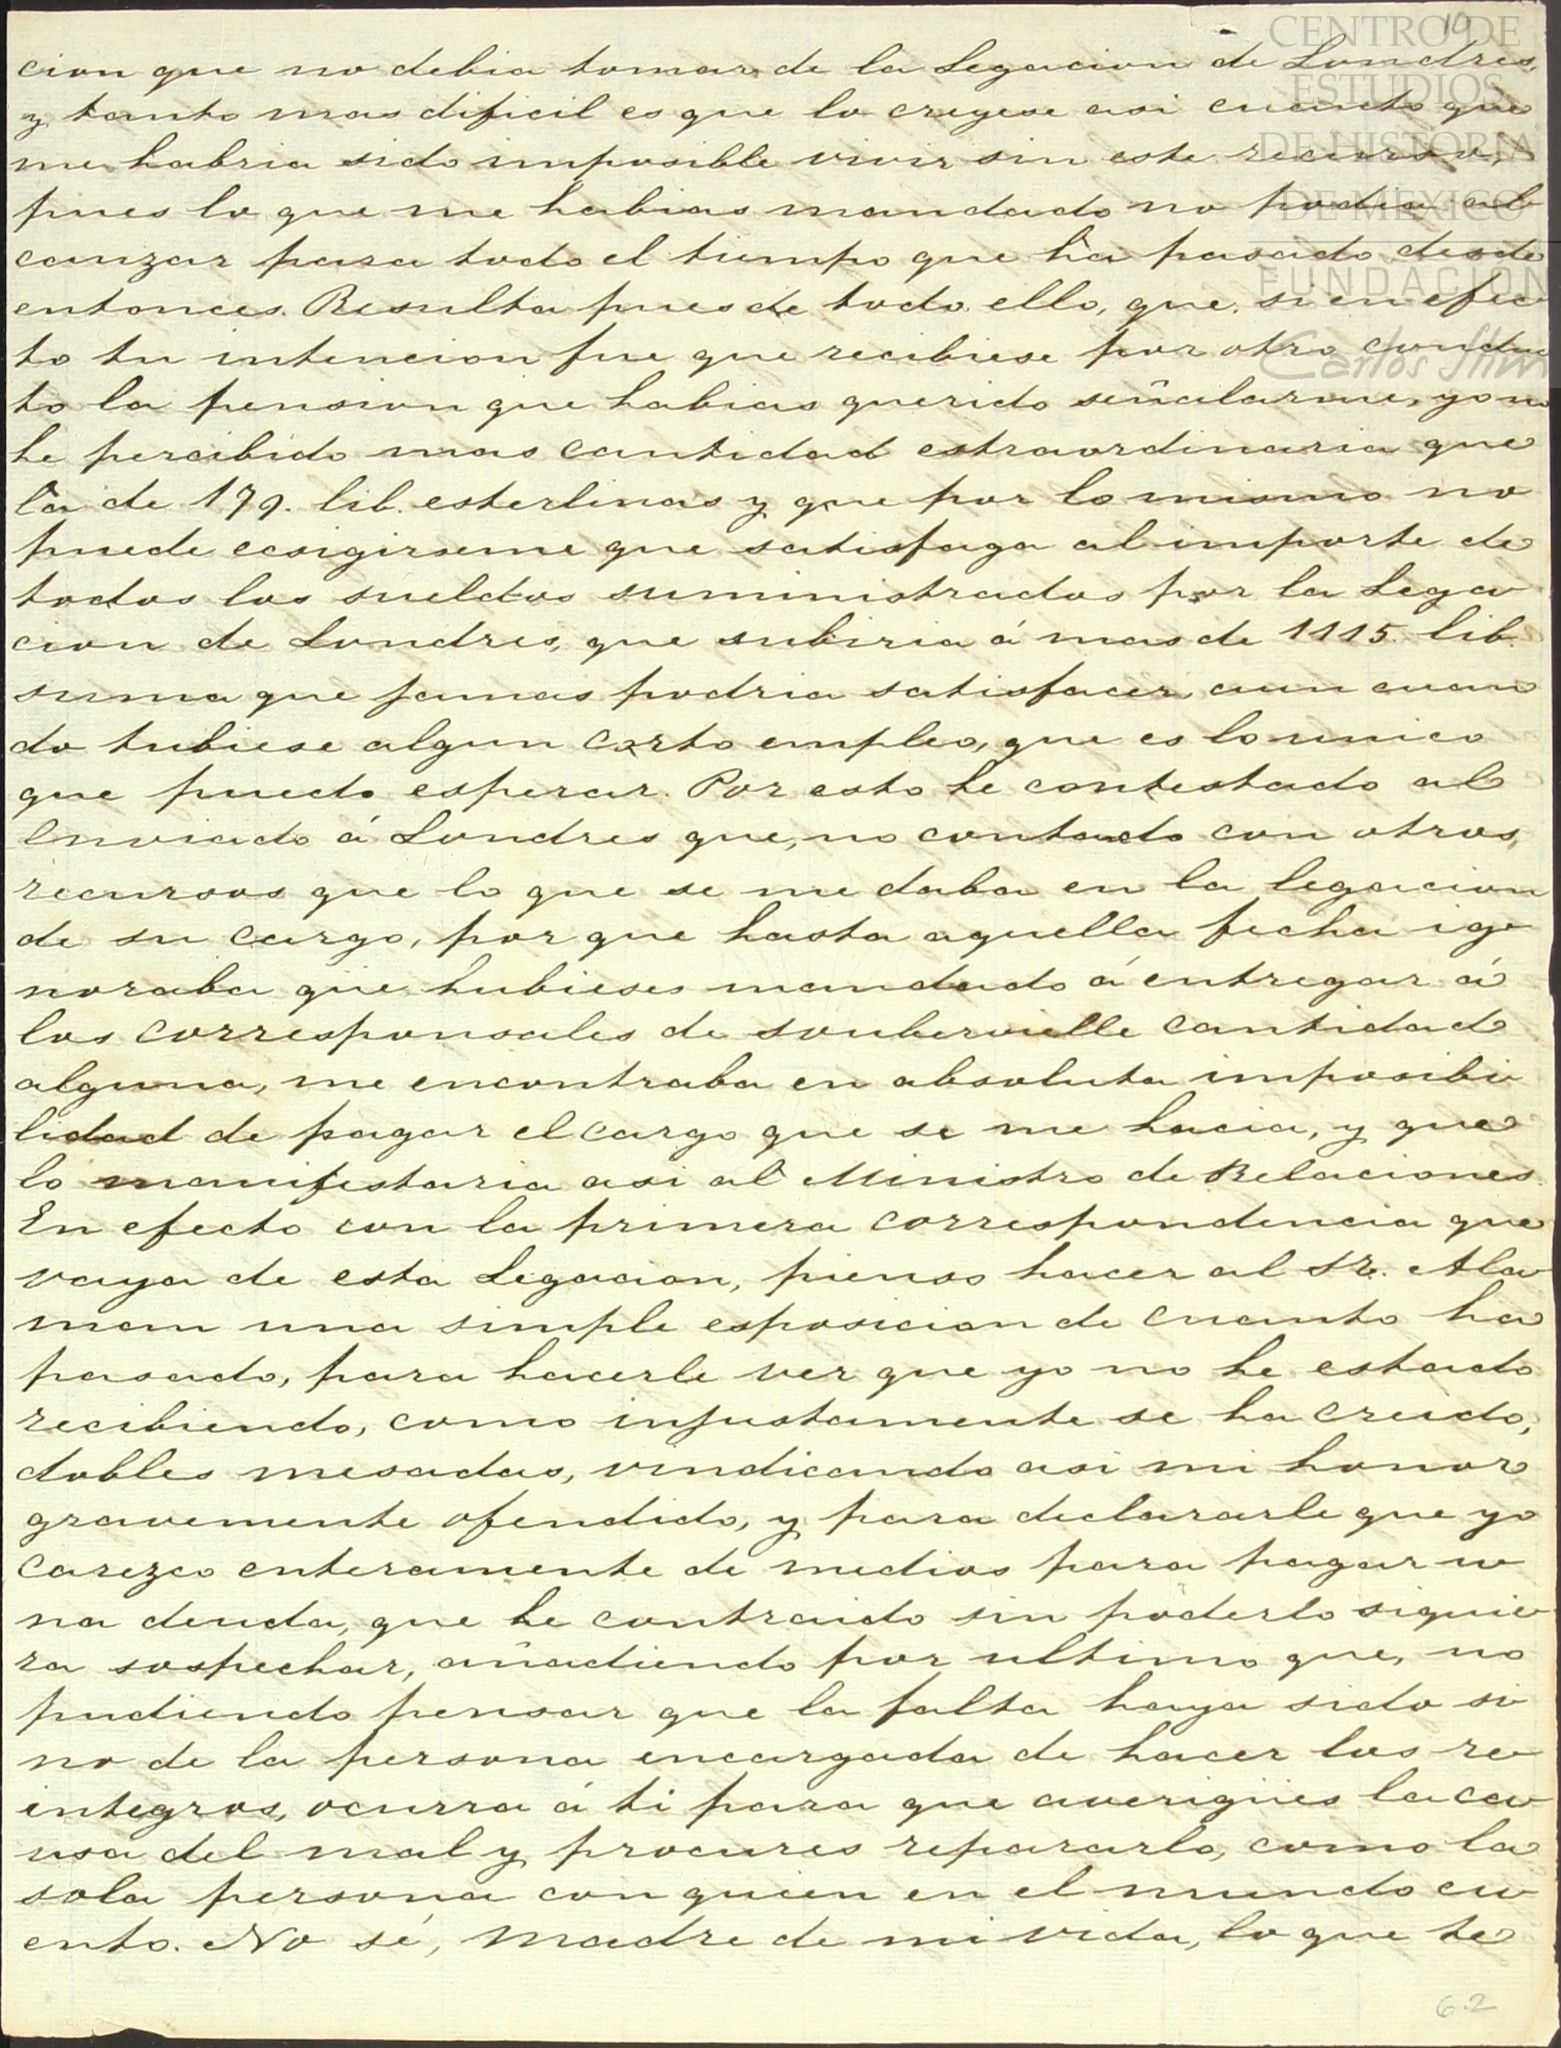 10
CENTRO DE
ESTUDIOS
DE HISTORIA
DE MÉXICO
FUNDACION
Carlos Slim
cion que no debia tomar de la Legacion de Londres,
y tanto mas dificil es que lo creyese asi cuanto que
me habria sido imposible vivir sin este recurso,
pues lo que me habias mandado no podia al-
canzar para todo el tiempo que ha pasado desde
entonces. Resulta pues de todo ello, que, si en efec-
to tu intencion fue que recibiese por otro conduc-
to la pension que habias querido señalarme, yo no
he percibido mas cantidad estraordinaria que
la de 179. lib. esterlinas y que por lo mismo no
puede ecsigirseme que satisfaga al importe de
todos los sueldos suministrados por la Lega-
cion de Londres, que subiria á mas de 1115. lib.
suma que jamas podria satisfacer, aun cuan
do tubiese algun corto empleo, que es lo unico
que puedo esperar. Por esto he contestado al
Enviado á Londres que, no contado con otros,
recursos que lo que se me daba en la legacion
de su cargo, por que hasta aquella fecha ig-
noraba que hubieses mandado á entregar á
los corresponsales de Soubervielle cantidad
alguna, me encontraba en absoluta imposibi-
lidad de pagar el cargo que se me hacia, y que
lo manifestaria asi al Ministro de Relaciones.
En efecto con la primera correspondencia que
vaya de esta Legacion, pienso hacer al Sr. Ala-
man una simple esposicion de cuanto ha
pasado, para hacerle ver que yo no he estado
recibiendo, como injustamente se ha creido,
dobles mesadas, vindicando asi mi honor
gravemente ofendido, y para declararle que yo
carezco enteramente de medios para pagar u-
na deuda, que he contraido sin poderlo siquie-
ra sospechar, añadiendo por ultimo que, no
pudiendo pensar que la falta haya sido si-
no de la persona encargada de hacer los re-
integros, ocurra á ti para que averigües la ca-
usa del mal y procures repararlo, como la
sola persona con quien en el mundo cu-
ento. No sé, madre de mi vida, lo que te
6.2